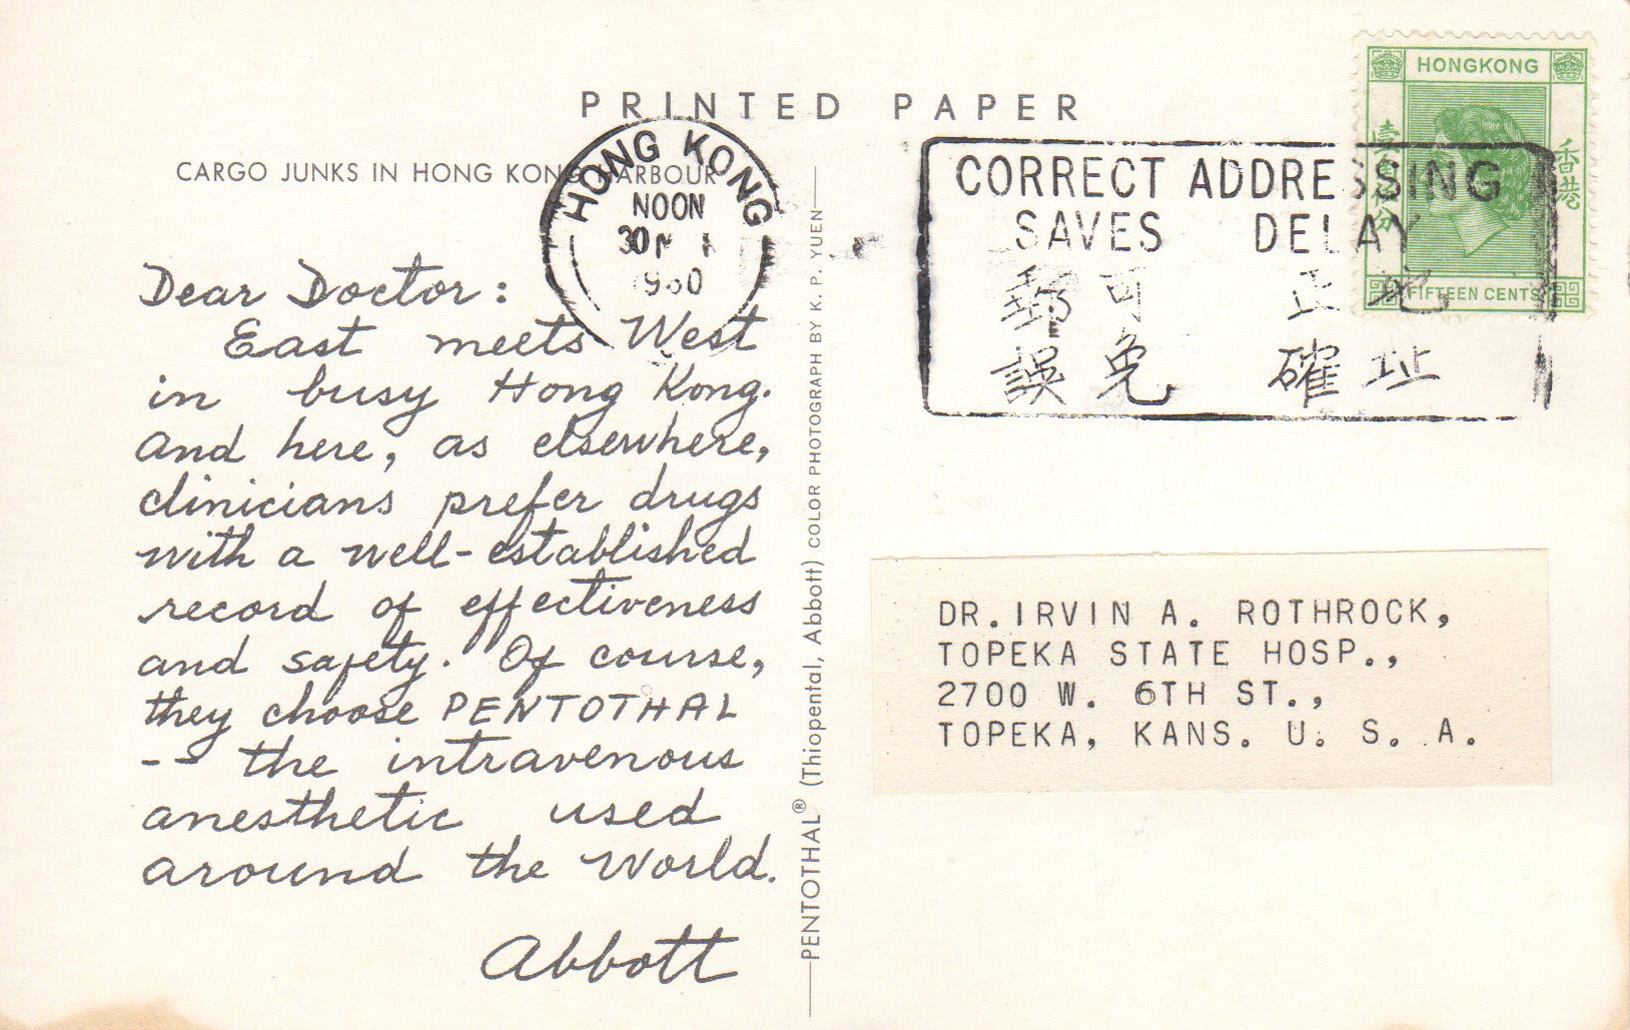 PRINTED PAPER
CARGO JUNKS IN HONG KONG HARBOUR
HONG KONG
NOON
30
1960
Dear Doctor:
East meets West
in busy Hong Kong.
And here, as elsewhere,
clinicians prefer drugs
with a well-established
record of effectiveness
and safety. Of course,
they choose PENTOTHAL
-- the intravenous
anesthetic used
around the world.
Abbott
PENTOTHAL® (Thiopental, Abbott) COLOR PHOTOGRAPH BY K. P. YUEN
HONGKONG
壹角伍分
香港
FIFTEEN CENTS
CORRECT ADDRESSING
SAVES DELAY
郵可 正地
誤免 確址
DR. IRVIN A. ROTHROCK,
TOPEKA STATE HOSP.,
2700 W. 6TH ST.,
TOPEKA, KANS. U. S. A.